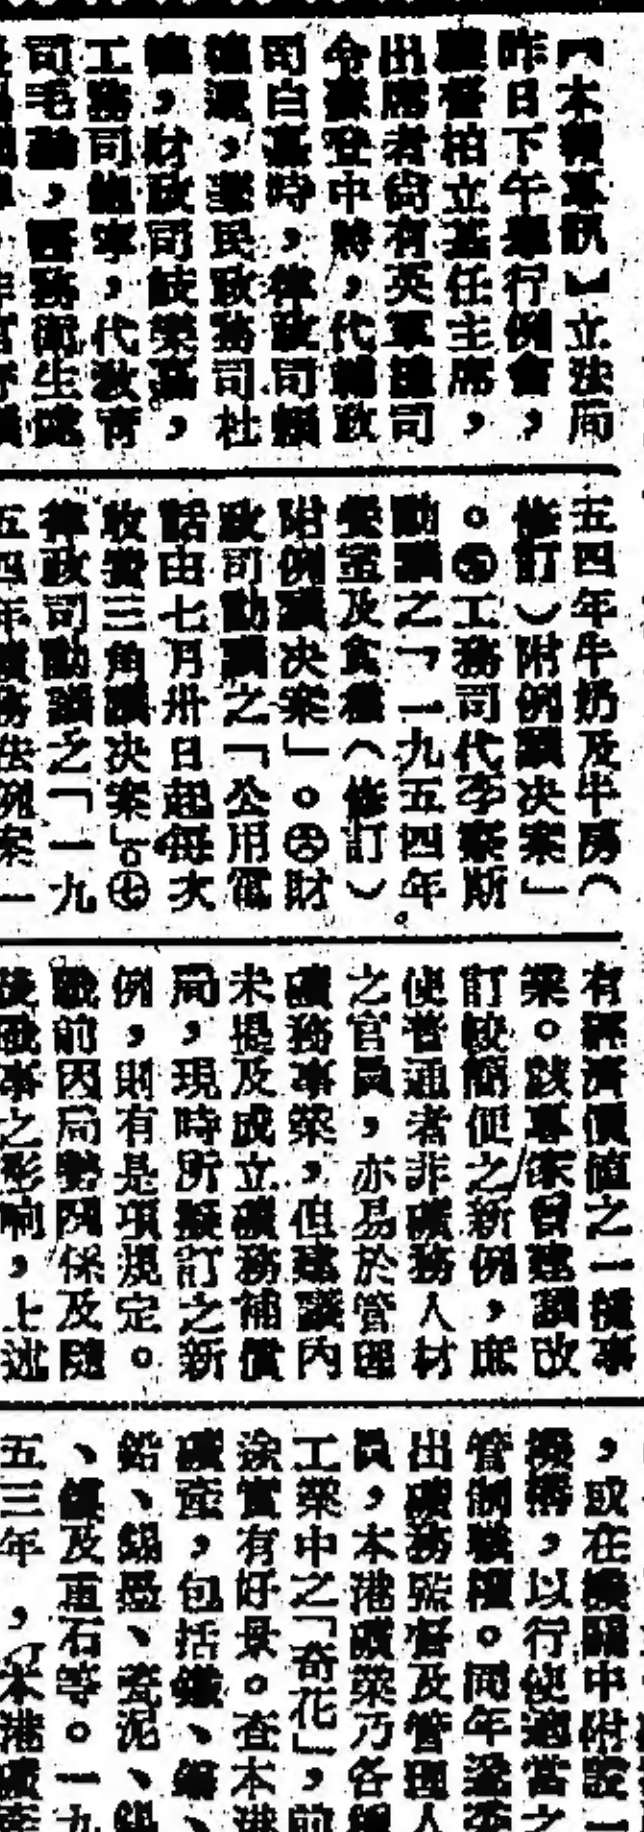 【本報專訊】立法局
昨日下午舉行例會，
護督柏立基任主席，
出席者尚有英軍總司
令梅登中將，代輔政
司白嘉時，律政司
，華民政務司杜
，財政司岐樂嘉，
工務司鮑寧，代教育
司毛勤，醫務衛生處
五四年牛奶及牛房（
修訂）附例議決案」
。㊄工務司代李察斯
動議之「一九五四年
餐室及食（修訂）
附例議决案」。㊅財
政司動議之「公用電
話由七月卅日起每次
收費三角議决案」。㊆
律政司動議之「一九
五四年礦務法例案一
有經濟價值之一種事
業。該專家曾建議改
訂較簡便之新例，庶
使普通者非礦務人材
之官員，亦易於管理
礦務事業，但建議內
未提及成立礦務補償
局，現時所擬訂之新
例，則有是項規定。
戰前因局勢關係及隨
後戰事之影响，上述
，或在機關中附設一
機構，以行使適當之
管制職權。同年並委
出礦務監督及管理人
員，本港礦業乃各種
工業中之「奇花」，前
途實有好景。查本港
礦產，包括鐵、
鉛、錫、瓷泥、
、及重石等。一九
五三年，本港礦產